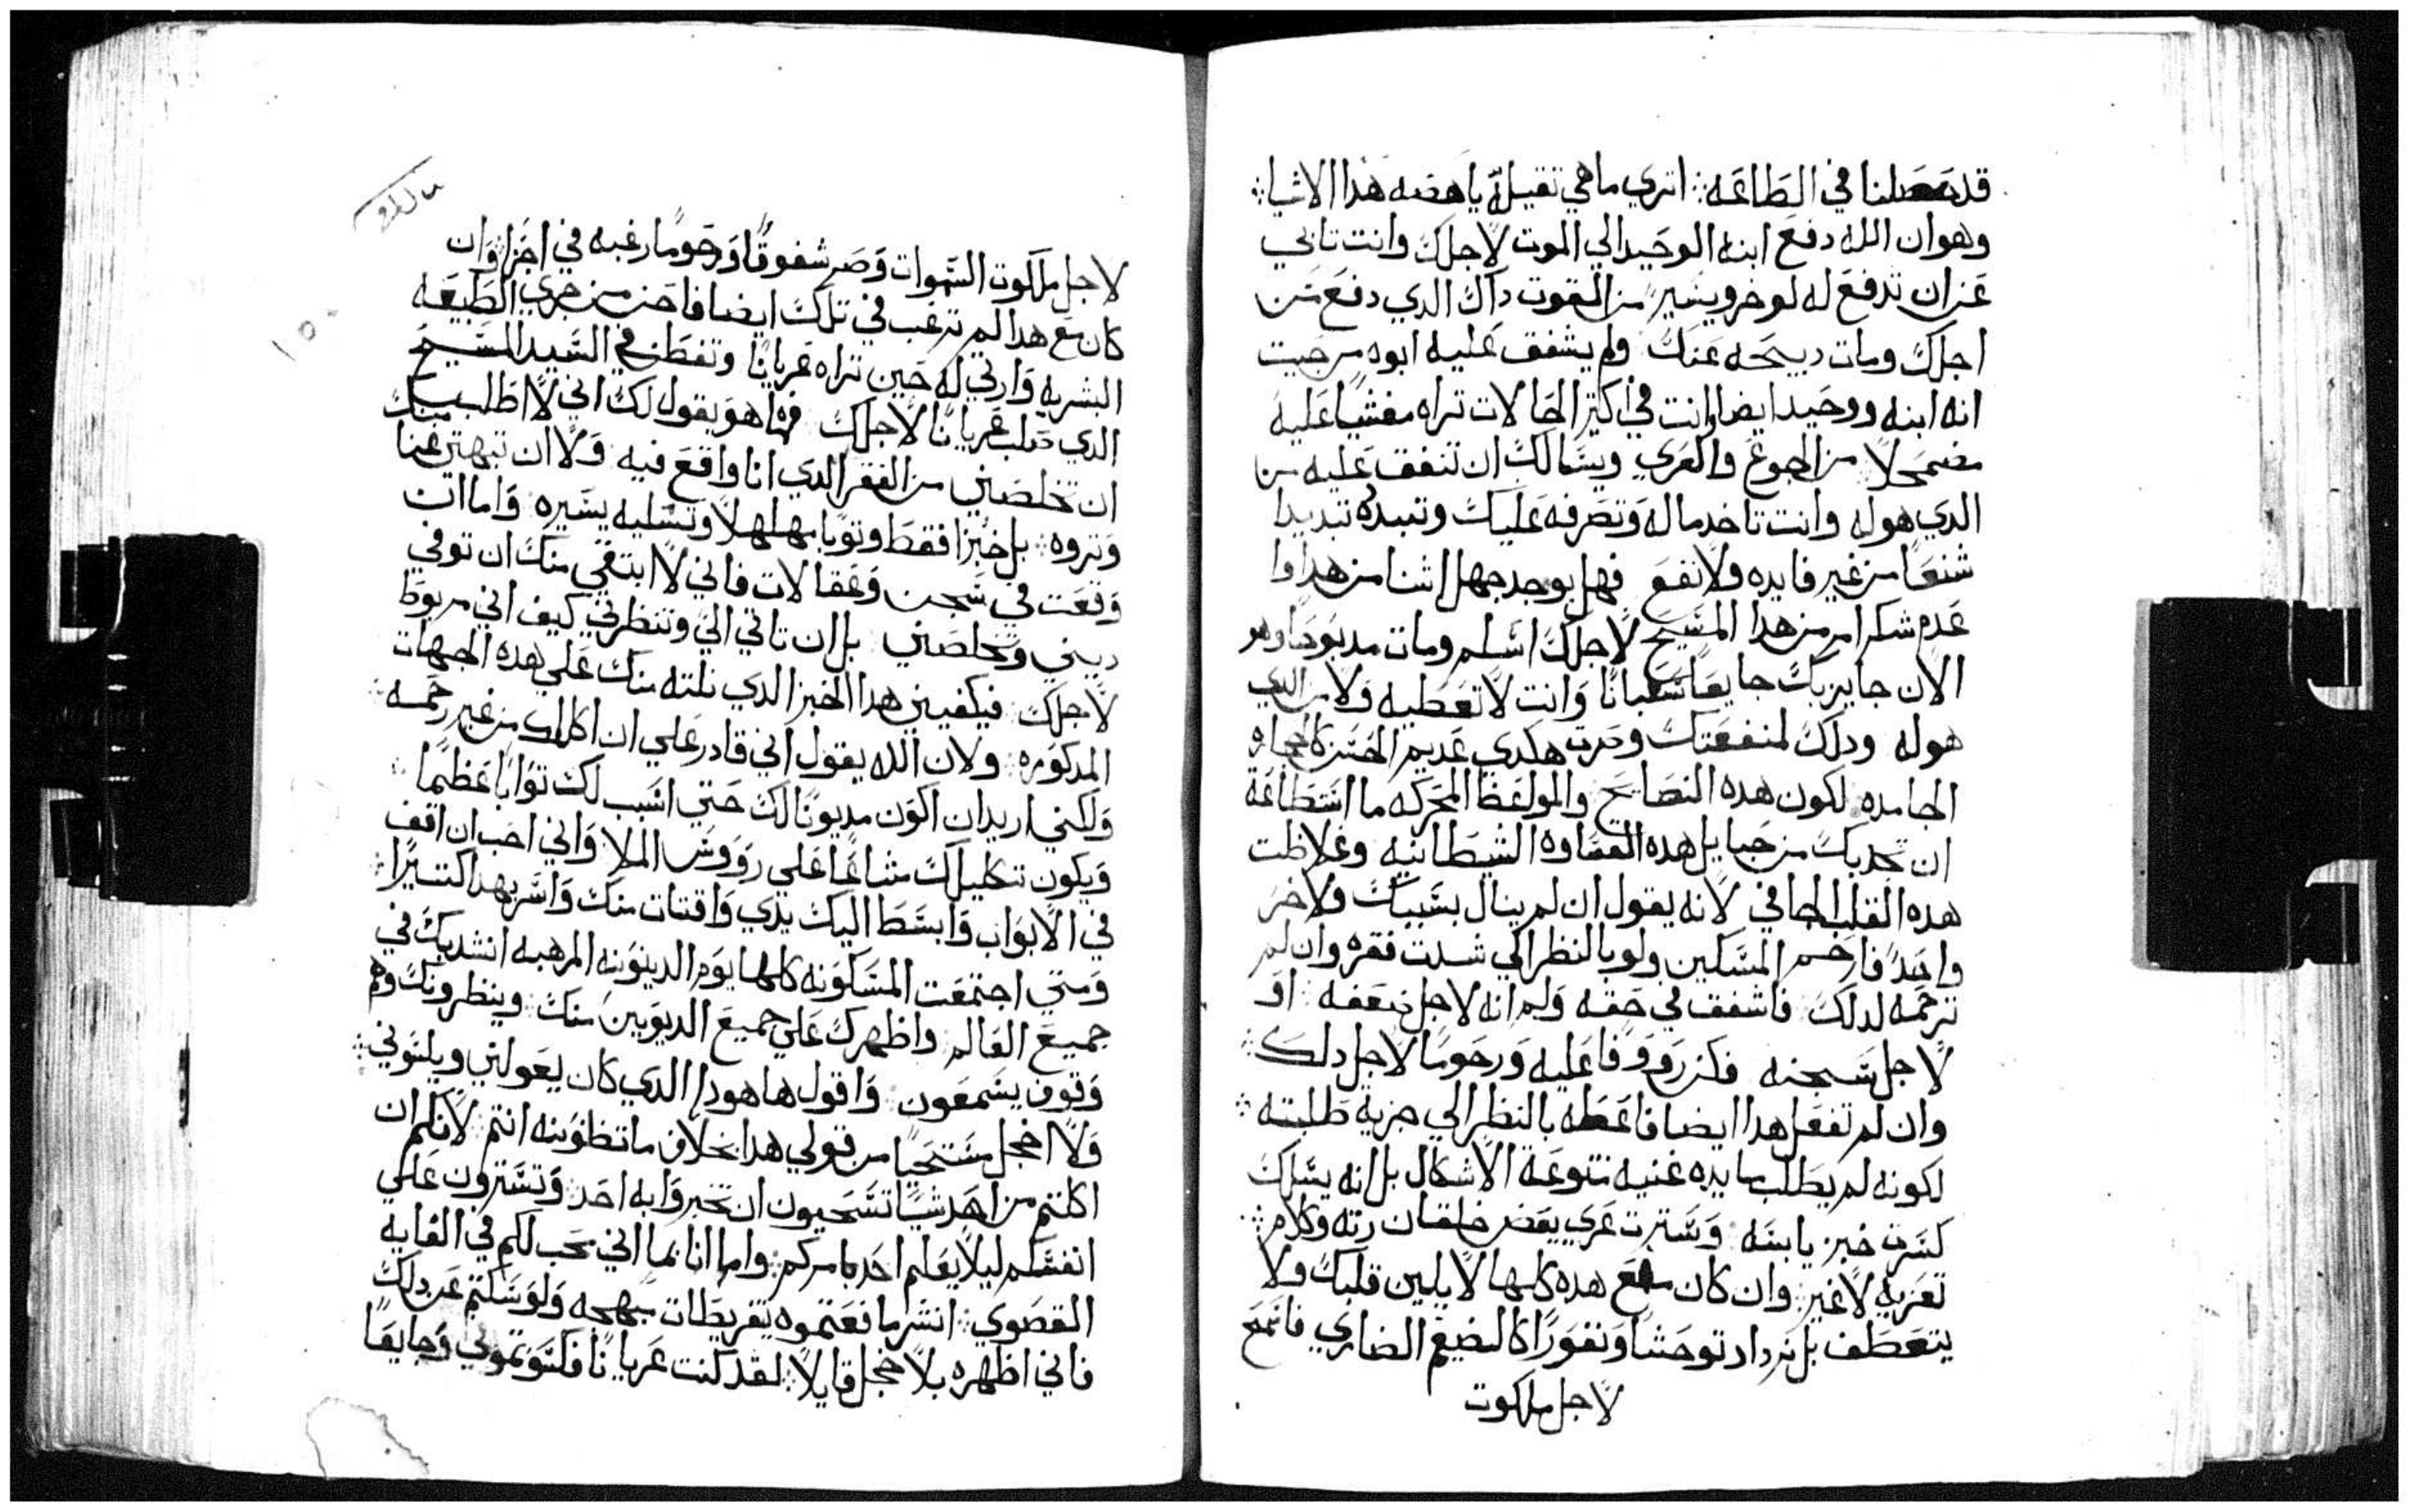 قد حصلنا في الطاعه ؞ اتري ما هي تقيله ياهضه هذا الاشيا ؞
وهو ان الله دفع ابنه الوحيد الي الموت لاجلك وانت تابي
عن ان تدفع له لو خرو يسير من القوت داك الدي دفع من
اجلك ومات دبيحه عنك ولم يشفق عليه ابوه من حيت
انه ابنه ووحيد ايضا وانت في اكتر الحالات تراه مغشيا عليه
مضمحلا من الجوع والعري ويسالك ان تنفق عليه من
الدي هو له وانت تاخد ماله وتصرفه عليك وتبدده تبديدا
شنعا من غير فايده ولا نفع فهل يوجد جهل اشنا من هدا وا
عدم شكر امر من هدا المسيح لاجلك اسلم ومات مدبوحا وهو
الان جايز بك جايعا سغبانا وانت لا تعطيه ولا من الدي
هو له ودلك لمنفعتك وصرت هكدي عديم الحس كالحجاره
الجامده لكون هده النصايح والمواعظ المحركه ما استطاعة
ان تجدبك من حبايل هده القساوه الشيطانيه وغلاظت
هده القلب الجافي لانه يقول ان لم ينال بسببك ولا خر
واحد فارحم المسكين ولو بالنظر الي شدت فقره وان لم
ترحمه لدلك فاشفق في حقه ولم انه لاجل ضعفه او
لاجل سجنه فكن رووفا عليه ورحوما لاجل دلك ؞
وان لم تفعل هدا ايضا فاعطه بالنظر الي جزية طلبته ؞
لكونه لم يطلب مايده غنيه متنوعة الاشكال بل انه يسلك
كسرت خبز يابسه وسترت عري بعض خلقان رته وكلام ؞
تعزيه لا غير ؞ وان كان مع هده كلها لا يلين قلبك ولا
يتعطف بل يزداد توحشا ونفورا كالضيغم الضاري فاسمح
لاجل ملكوت
لاجل ملكوت السموات وصر شفوقا ورحوما رغبه في اجزا وان
كان مع هدا لم ترغب في تلك ايضا فاحن من جري الطبيعه
البشريه وارتي له حين تراه عريانا وتفطن في السيد المسيح
الدي صلب عريانا لاجلك فها هو يقول لك اني لا اطلب منك
ان تخلصني من الفقر الدي انا واقع فيه ولا ان تبهتن غنا
وتروه ؞ بل خبزا فقط وتوبا مهلهلا وتسليه يسيره واما ان
وقعت في سجن وعقالات فاني لا ابتغي منك ان توفي
ديني وتخلصني بل ان تاتي الي وتنظرني كيف اني مربوط
لاجلك فيكفيني هدا الخبز الدي نلته منك علي هده الجهات
المدكوره ولان الله يقول اني قادر علي ان اكللك من غير رحمه ؞
ولكني اريد ان اكون مديونا لك حتي اسبب لك توابا عظيما
ويكون تكليلك مشاعا علي رووس الملا واني احب ان اقف
في الابواب وابسط اليك يدي واقتات منك واسر بهدا كتيرا ؞
ومتي اجتمعت المسكونه كلها يوم الدينونه المرهبه انشد بك في
جميع العالم واظهرك علي جميع الديويين منك وينظرونك وهم
وقوف يسمعون واقول ها هودا الدي كان يعولني ويلسوني ؞
ولا اخجل مستحيا من قولي هدا بخلاف ما تظنونه انتم لانكم ان
اكلتم من احد شيا تستحيون ان تخبروا به احد وتسترون علي
انفسكم ليلا يعلم احد بامركم واما انا بما اني محب لكم في الغايه
القصوي ؞ انشر ما فعتموه بتقريطات مبهجه ولو سكتم عن دلك
فاني اظهره بلا خجل قايلا ؞ لقد كنت عريانا فكسوتموني وجايعا